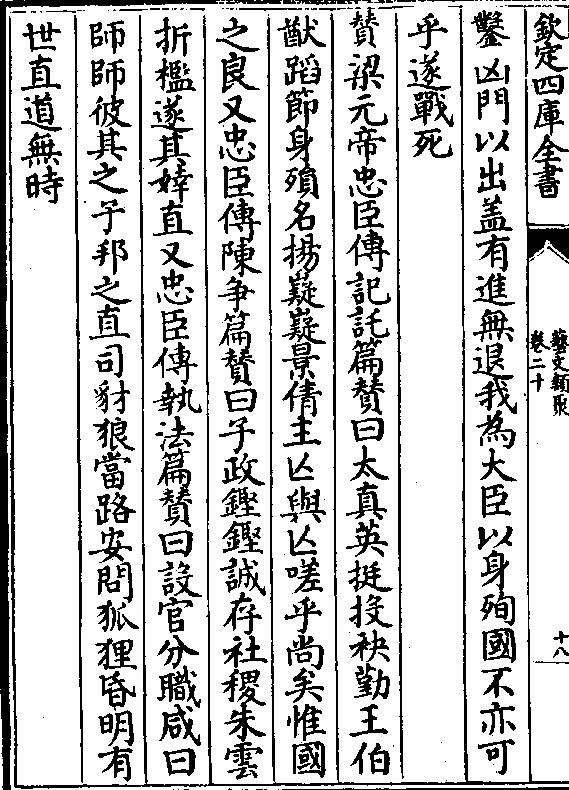 欽定四庫全書
藝文類聚
卷二十
十八
鑿凶門以出盖有進無退我為大臣以身殉國不亦可
乎遂戰死
賛梁元帝忠臣傳記託篇賛曰太真英挺投袂勤王伯
猷蹈節身殞名揚嶷嶷景倩主亾與亾嗟乎尚矣惟國
之良又忠臣傳陳争篇賛曰子政鏗鏗誠存社稷朱雲
折檻遂其婞直又忠臣傳執法篇賛曰設官分職咸曰
師師彼其之子邦之直司豺狼當路安問狐狸昏明有
世直道無時